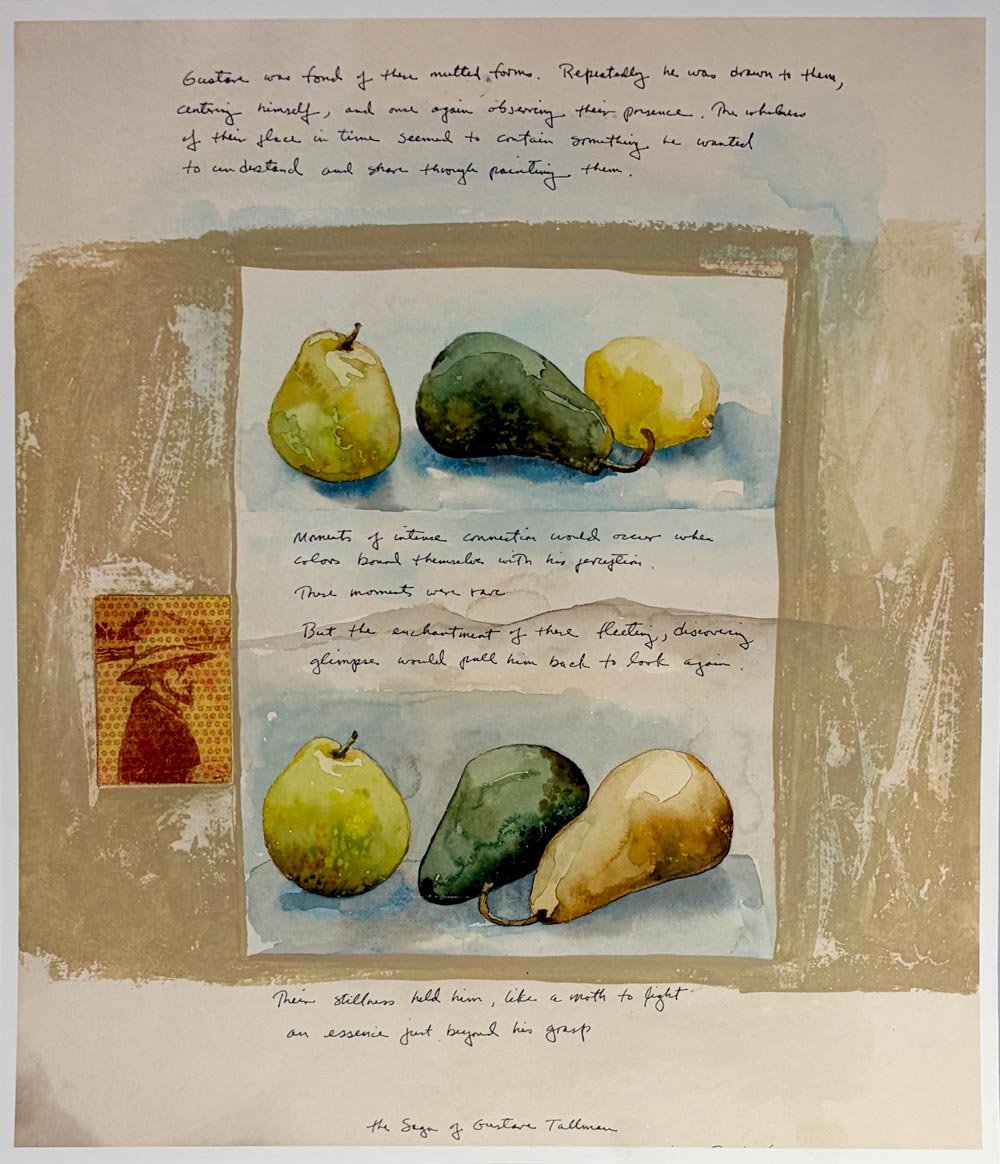 Gustave was fond of these mutted forms. Repeatedly he was drawn to them,
centring himself, and once again observing their presence. The wholeness
of their place in time seemed to contain something he wanted
to understand and share through painting them.
Moments of intense connection would occur when
colors bound themselves with his perception.
These moments were rare
But the enchantment of these fleeting, discovering
glimpses would pull him back to look again.
Their stillness held him, like a moth to light
an essence just beyond his grasp
the Saga of Gustave Tallman